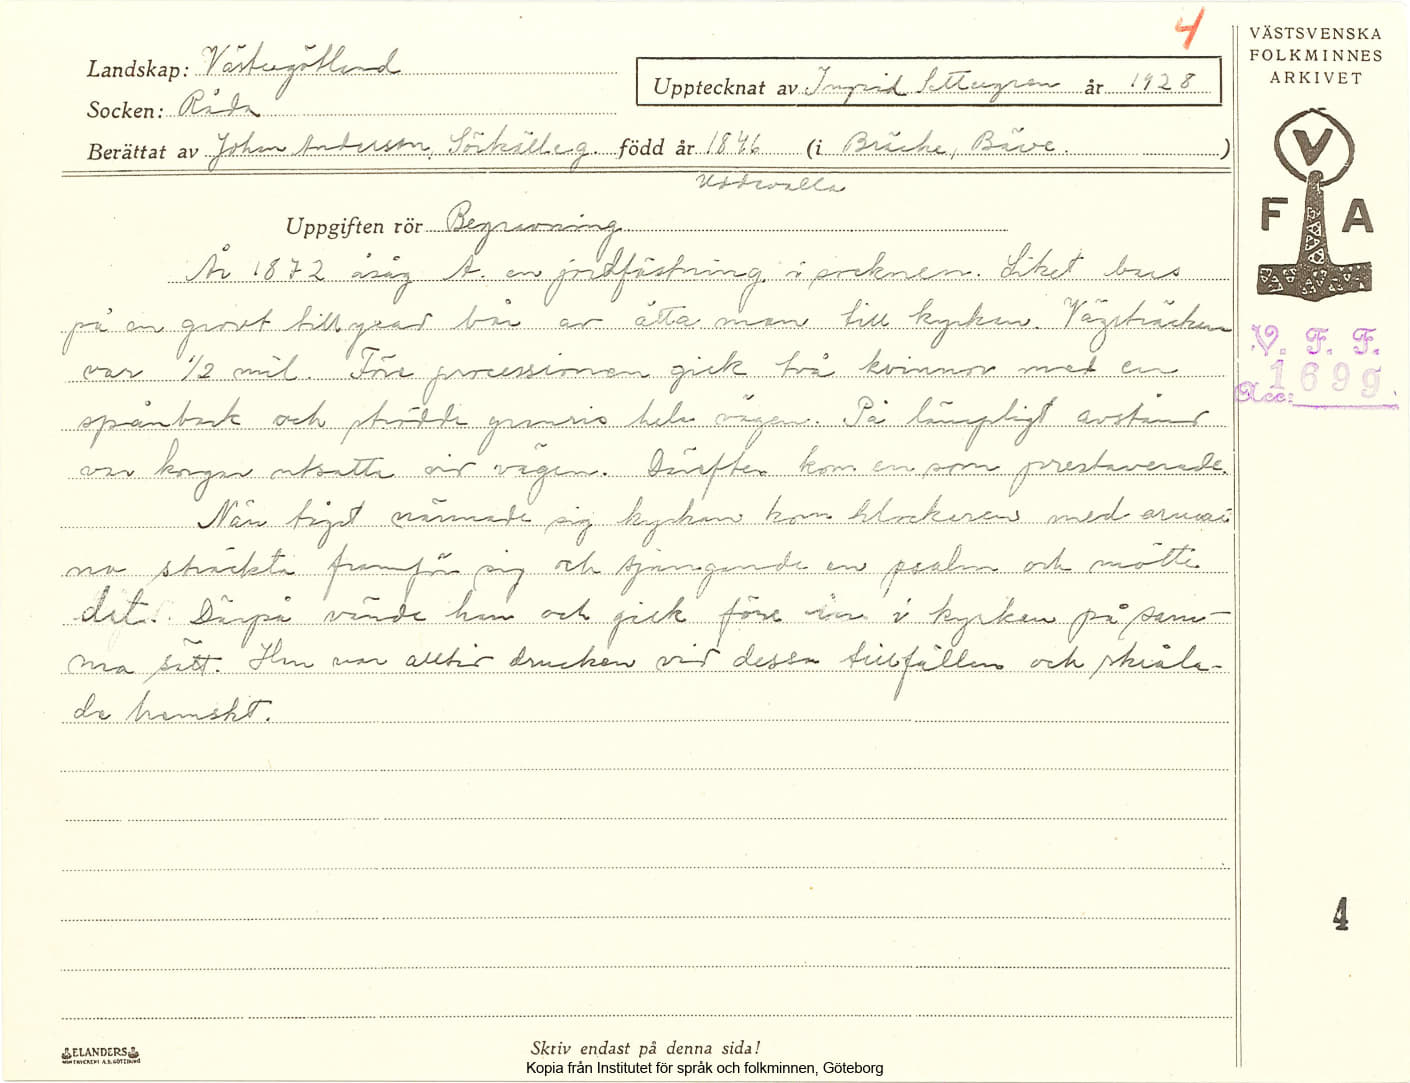 4
VÄSTSVENSKA
FOLKMINNES
ARKIVET
Landskap: Västergötland
Upptecknat av Ingrid år 1928
Socken: Råda
Berättat av Johan Anderson, född år 1846 (i Bräcke, Bäve. )
Uddevalla
Uppgiften rör Begravning
År 1872 åsåg A. en jordfästning i socknen. Liket bars
på en grovt tillyxad bår av åtta man till kyrkan. Vägsträckan
var 1/2 mil. Före processionen gick två kvinnor med en
spånbark och strödde granris hela vägen. På lämpligt avstånd
var korgar utsatta vid vägen. Därefter kom en som prestaverade.
När tåget närmade sig kyrkan kom klockaren med armar-
na sträckta framför sig och sjungande en psalm och mötte
det. Därpå vände han och gick före in i kyrkan på sam-
ma sätt. Han var alltid drucken vid dessa tillfällen och skråla-
de hemskt.
V
F A
V. F. F.
Acc: 1699
4
ELANDERS
Skriv endast på denna sida!
Kopia från Institutet för språk och folkminnen, Göteborg